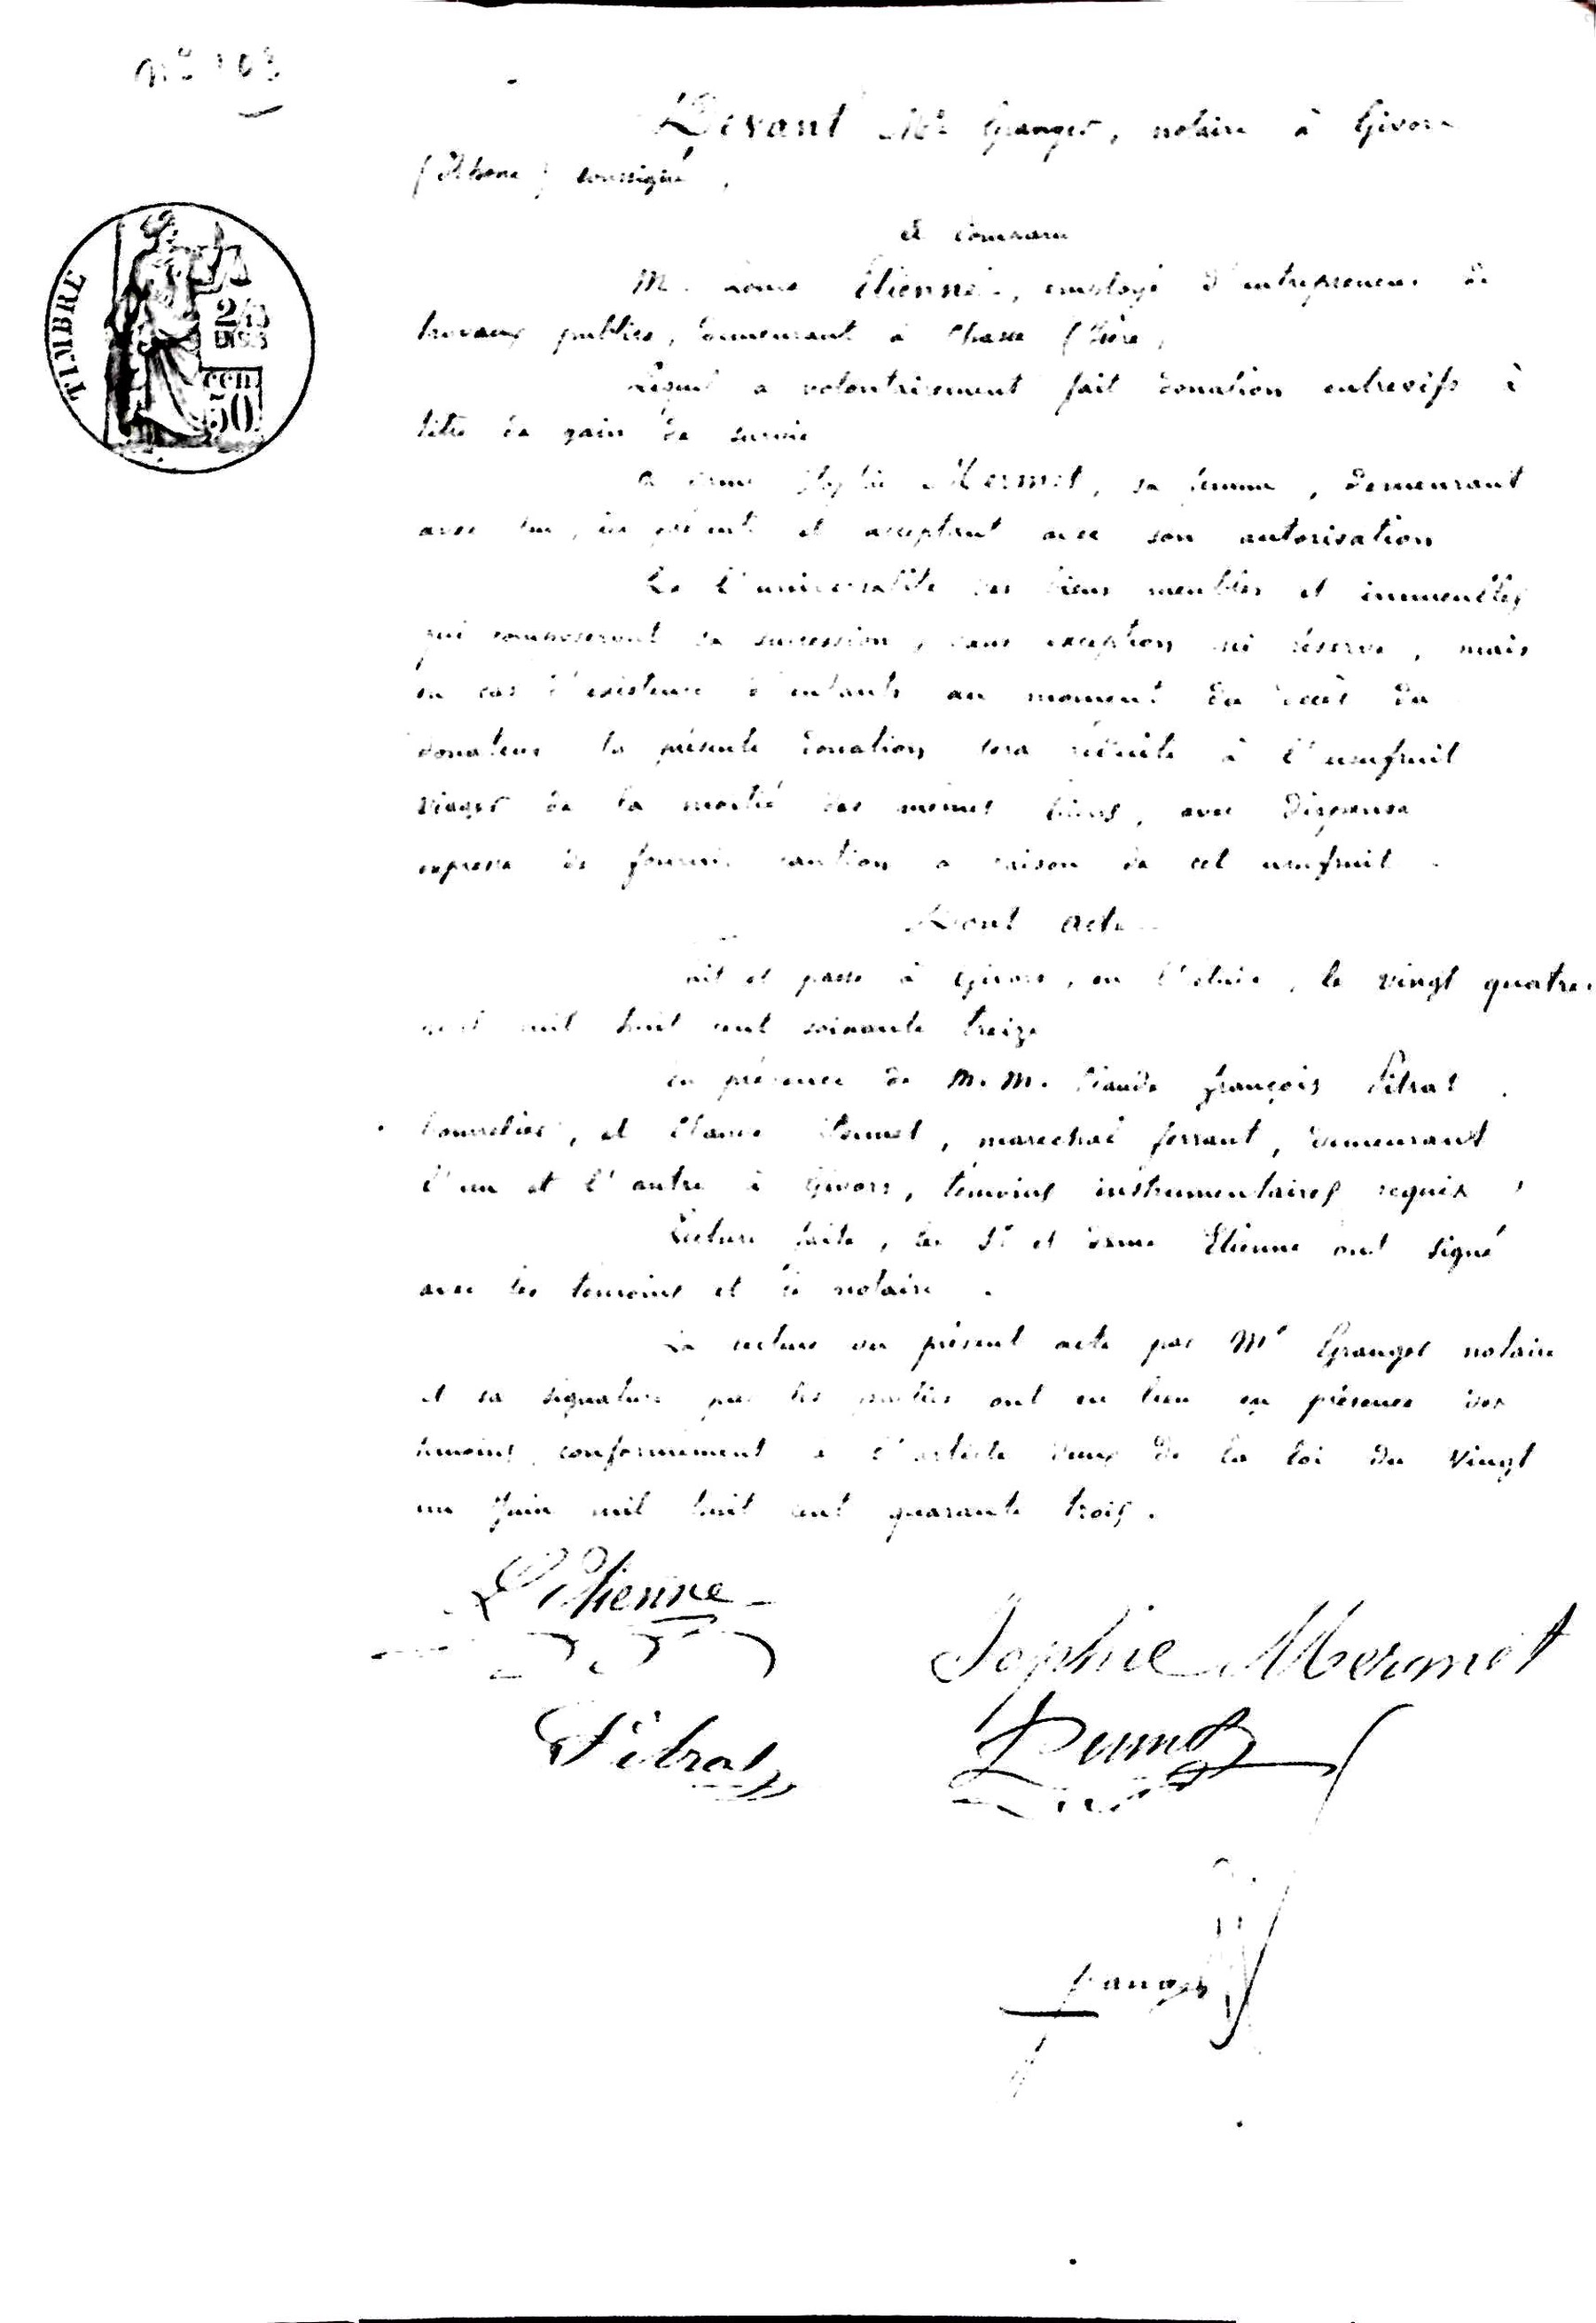 Devant Me Granger, notaire à Givors
(Rhône) soussigné,
A comparu
TIMBRE
50
M. Louis Etienne, employé d'entrepreneur de
travaux publics, demeurant à Chasse (Isère)
Lequel a volontairement fait donation entrevifs à
titre de gain de survie
A dame Sophie Mermet, sa femme, demeurant
avec lui, ici présente et acceptant avec son autorisation
De l'universalité des biens meubles et immeubles
qui composeront sa succession, sans exception ni réserve, mais
en cas d'existence d'enfants au moment du décès du
donateur la présente donation sera réduite à l'usufruit
viager de la moitié des mêmes biens, avec dispense
expresse de fournir caution a raison de cet usufruit.
Dont acte
Fait et passé à Givors, en l'étude, le vingt quatre
mil huit cent soixante treize
En présence de M. M. Claude François Pitrat
bourrelier, et Claude, maréchal ferrant, demeurant
l'un et l'autre à Givors, témoins instrumentaires requis
Lecture faite, les Sr et dame Etienne ont signé
avec les témoins et le notaire.
La lecture du présent acte par Me Granger notaire
et sa signature par les parties ont eu lieu en présence des
témoins conformément à l'article deux de la loi du vingt
un Juin mil huit cent quarante trois.
L Etienne
Sophie Mermet
Pitrat
Granger